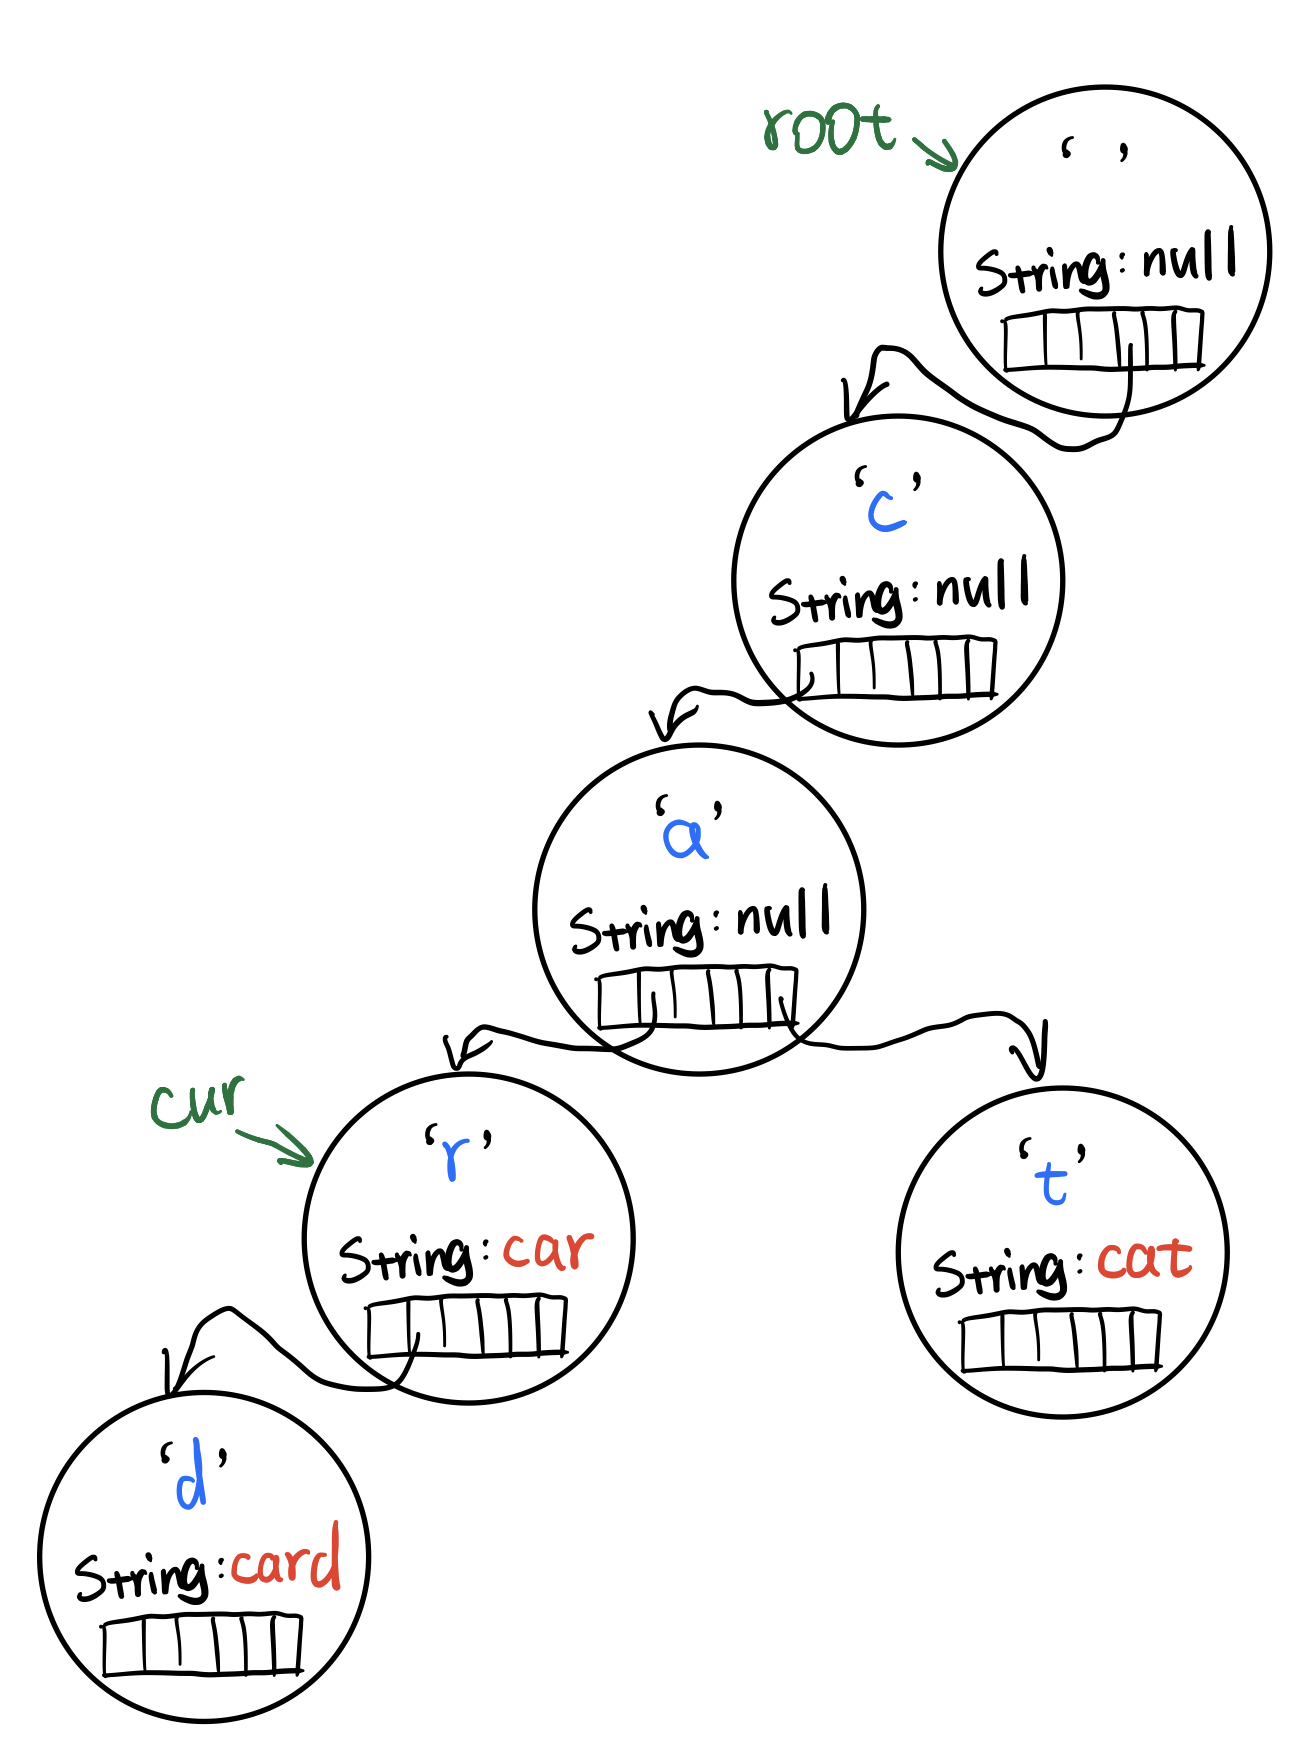 root
‘ ’
String: null
‘c’
String: null
‘a’
String: null
cur
‘r’
String: car
‘t’
String: cat
‘d’
String: card